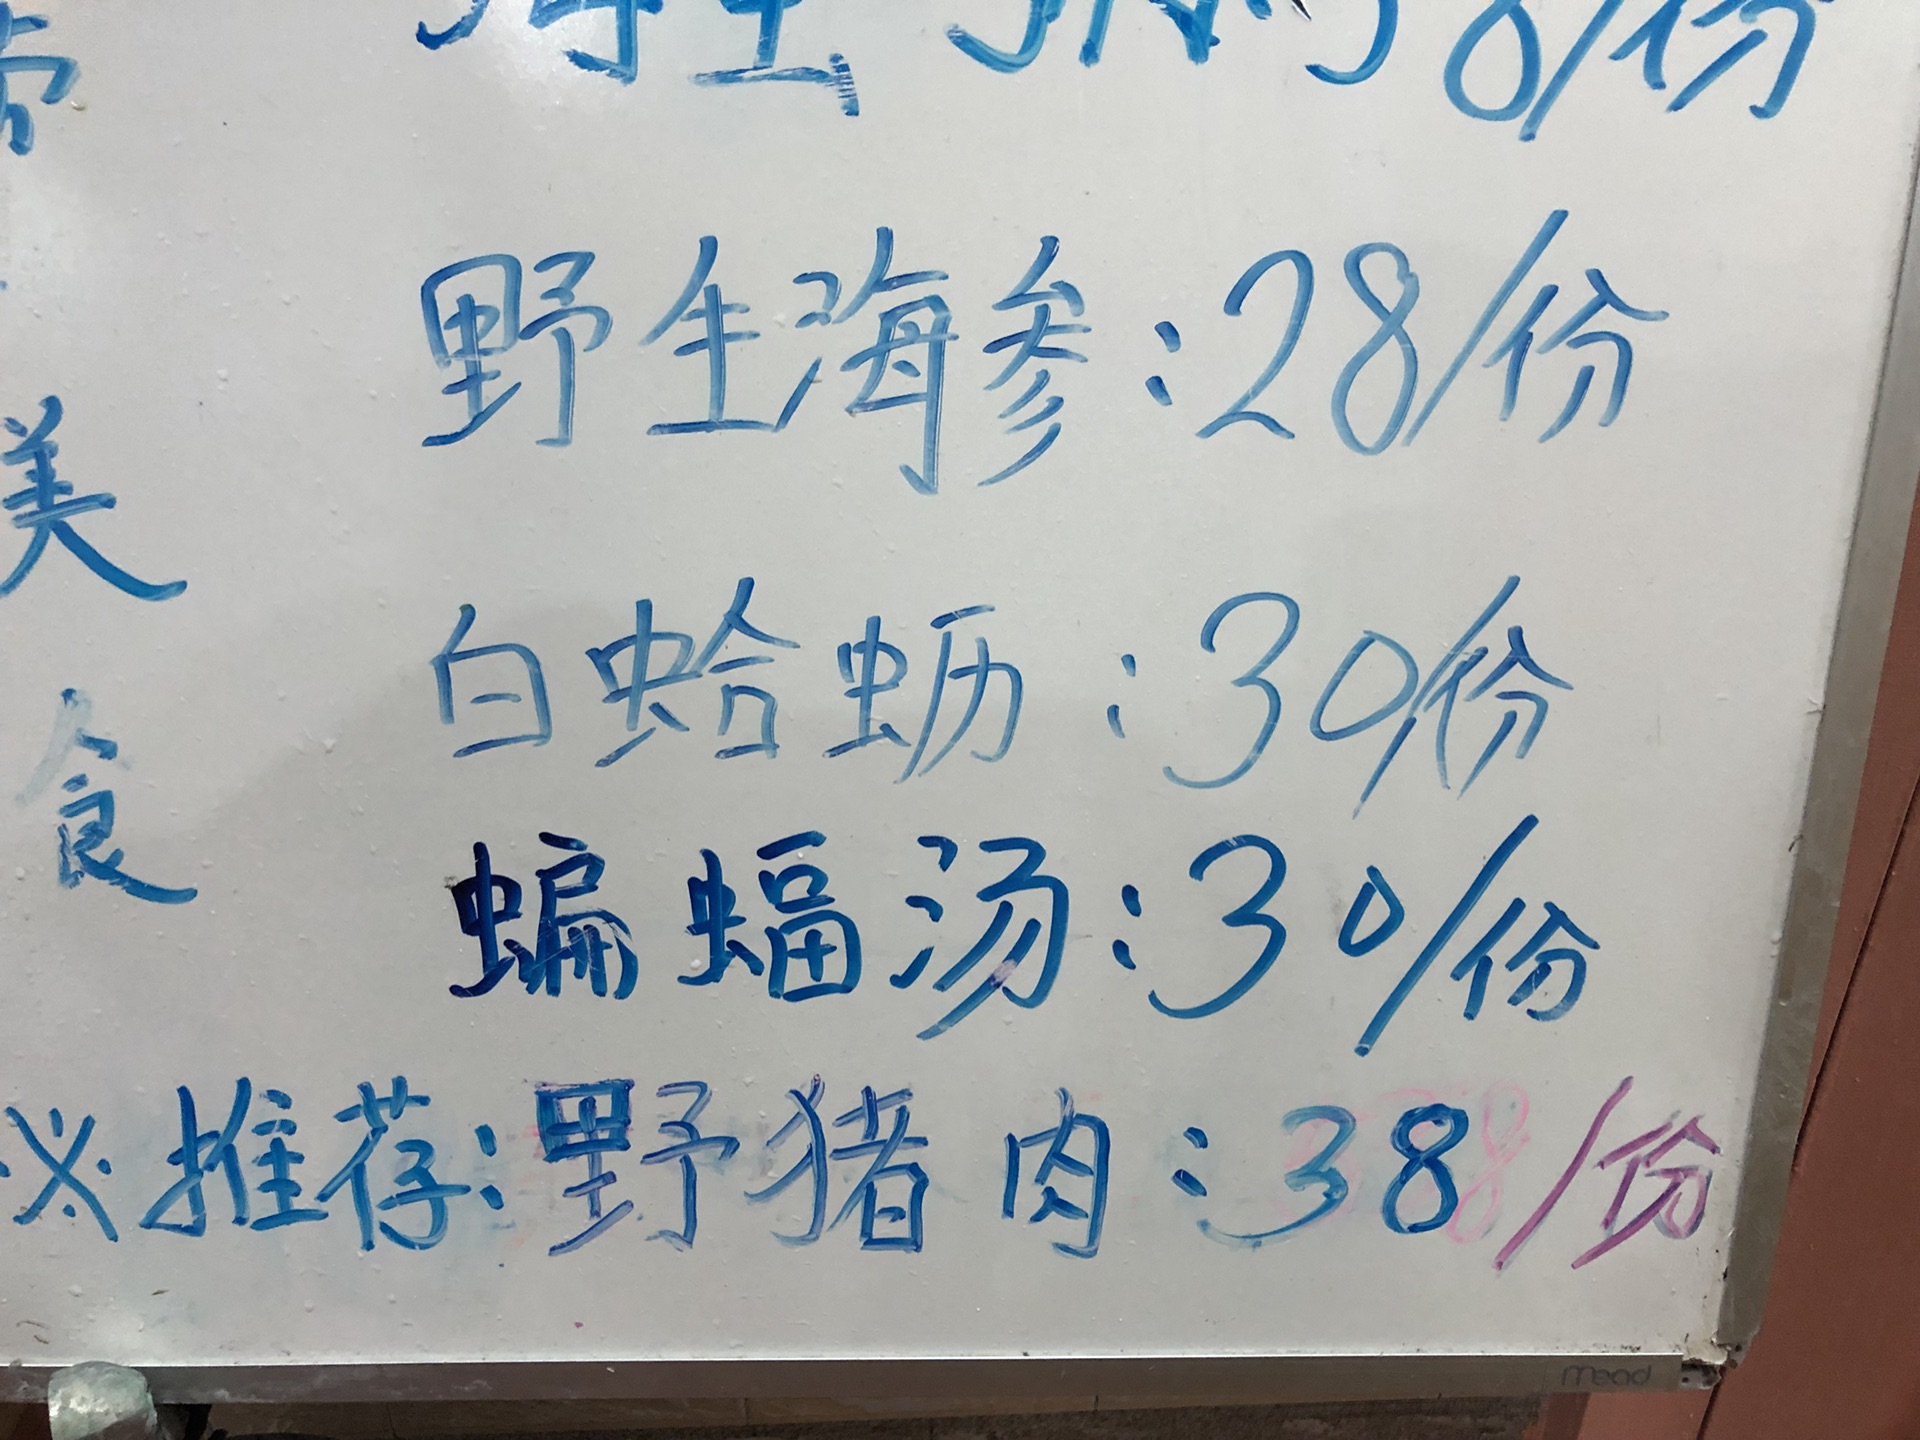 8/份
野生海参:28/份
美
白蛤蛎:30/份
食
蝙蝠汤:30/份
※推荐:野猪肉:38/份
mead